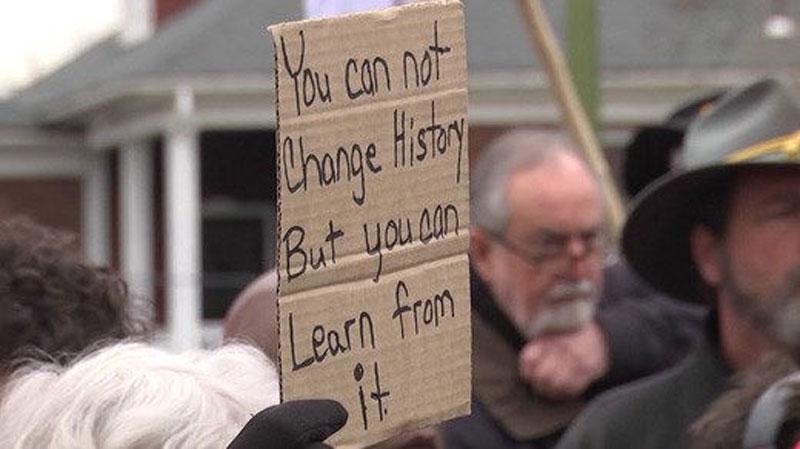 You can not
Change History
But you can
Learn from
it.